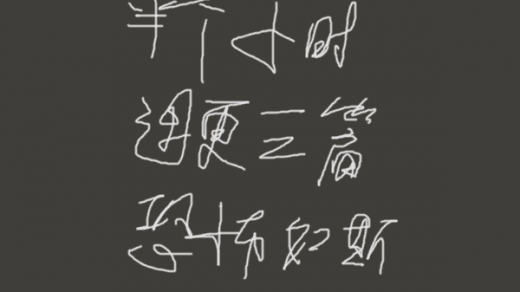 半个小时
连更三篇
恐怖如斯